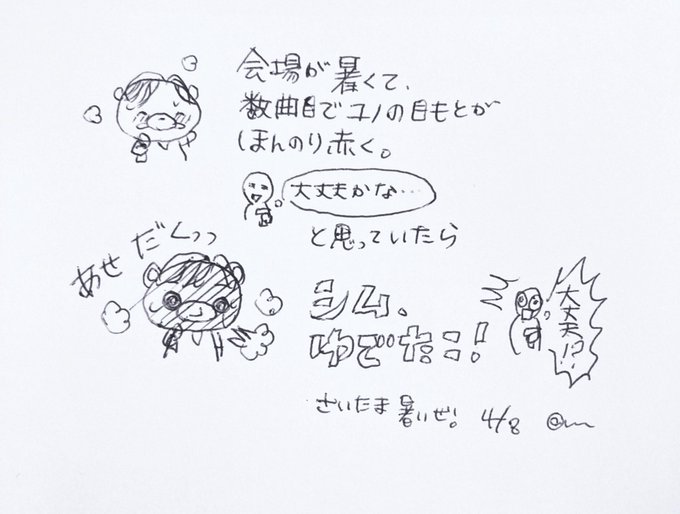 会場が暑くて、
数曲目でユノの目もとが
ほんのり赤く。
大丈夫かな…
と思っていたら
あせだくっっ
シム、
ゆでたこ!
大丈夫!?
さいたま暑いぜ! 4/8